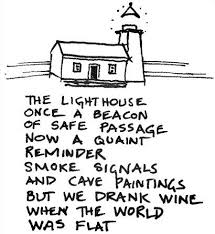 THE LIGHTHOUSE
ONCE A BEACON
OF SAFE PASSAGE
NOW A QUAINT
REMINDER
SMOKE SIGNALS
AND CAVE PAINTINGS
BUT WE DRANK WINE
WHEN THE WORLD
WAS FLAT